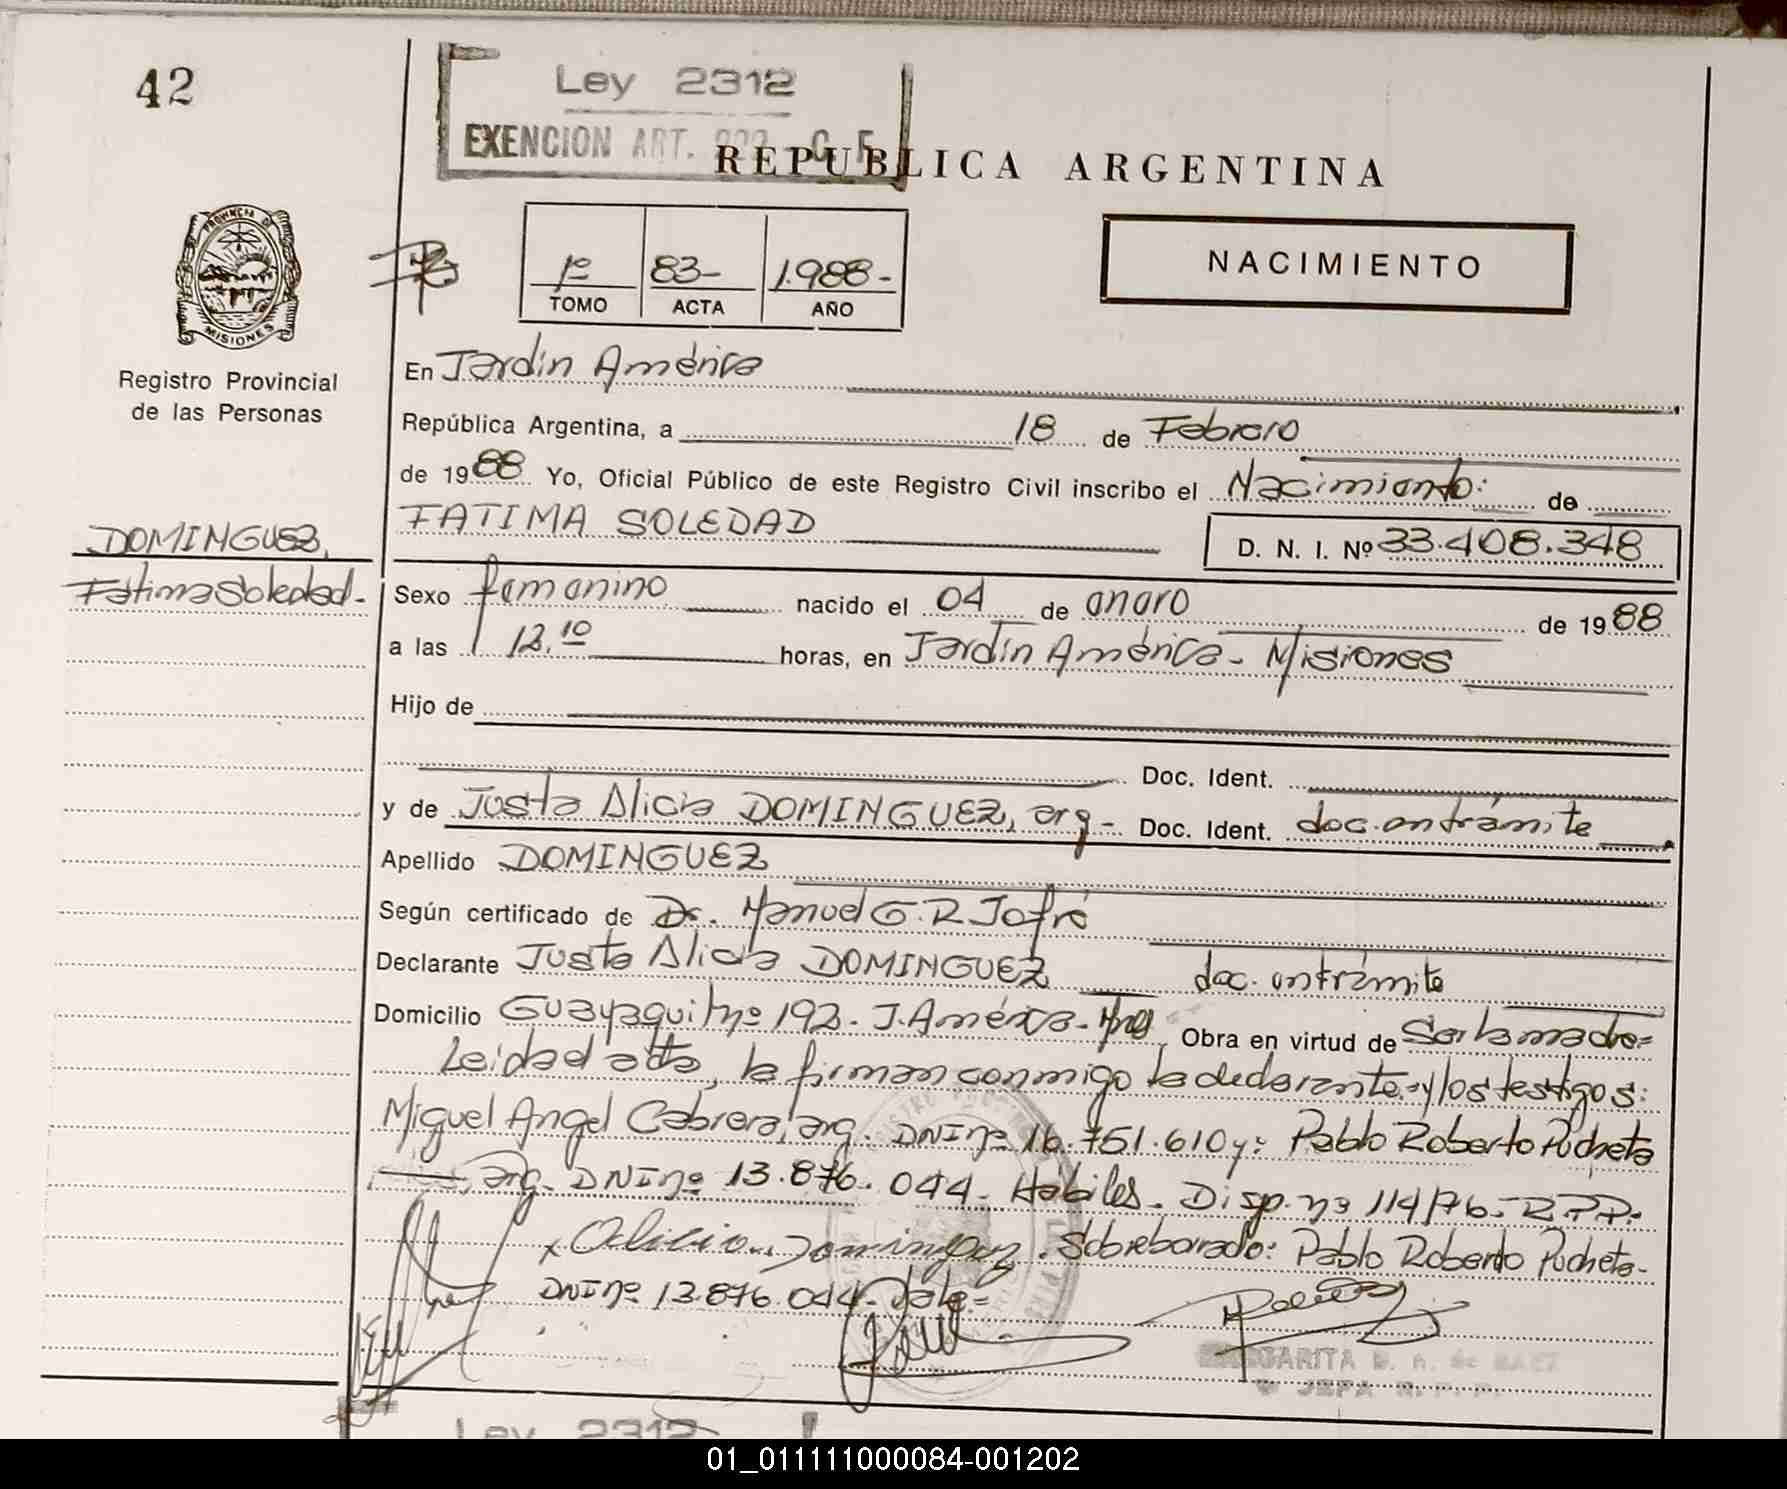 42
Ley 2312
EXENCION ART.
REPUBLICA ARGENTINA
PROVINCIA DE
MISIONES
Registro Provincial
de las Personas
1º 83- 1.988-
TOMO ACTA AÑO
NACIMIENTO
En Jardín América
República Argentina, a 18 de Febrero
de 1988 Yo, Oficial Público de este Registro Civil inscribo el Nacimiento: de
FATIMA SOLEDAD D. N. I. Nº 33.408.348
DOMINGUEZ,
Fátima Soledad-
Sexo femenino nacido el 04 de enero de 1988
a las 12,10 horas, en Jardín América- Misiones
Hijo de
Doc. Ident.
y de Justa Alicia DOMINGUEZ, arg- Doc. Ident. doc. en trámite
Apellido DOMINGUEZ
Según certificado de Dr. Manuel G. R Jofré
Declarante Justa Alicia DOMINGUEZ doc. en trámite
Domicilio Guayaquil nº 192- J. América- Mnes Obra en virtud de Ser la madre=
Leída el acta, la firman conmigo la declarante y los testigos:
Miguel Angel Cabrera, arg. DNI nº 16.751.610 y: Pablo Roberto Pucheta
arg. DNI nº 13.876.044- Hábiles- Disp. nº 114/76- R.P.P.
x Alicia Dominguez. Sobreborrado: Pablo Roberto Pucheta-
DNI nº 13.876.044- Vale=
GARITA D. A. de BAEZ
JEFA R. P. P.
Ley 2312
01_011111000084-001202